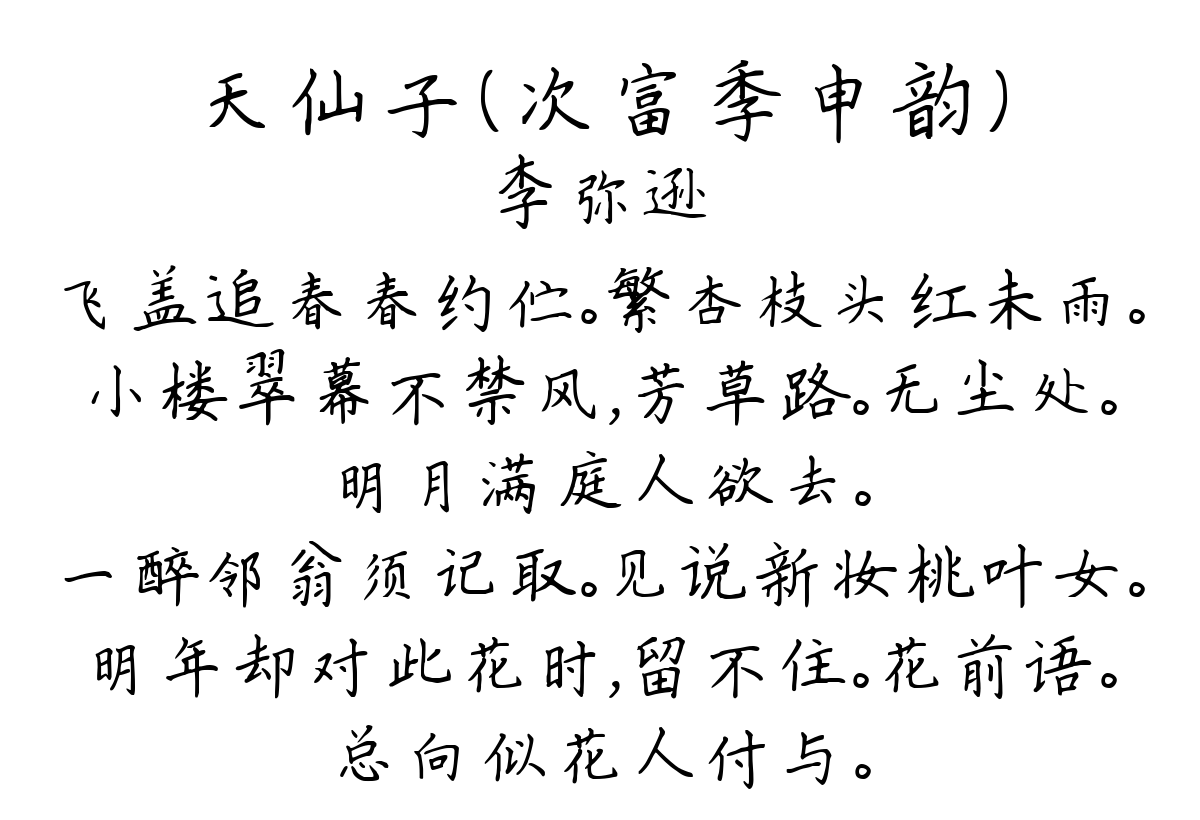 天仙子(次富季申韵)
李弥逊
飞盖追春春约伫。繁杏枝头红未雨。
小楼翠幕不禁风,芳草路。无尘处。
明月满庭人欲去。
一醉邻翁须记取。见说新妆桃叶女。
明年却对此花时,留不住。花前语。
总向似花人付与。